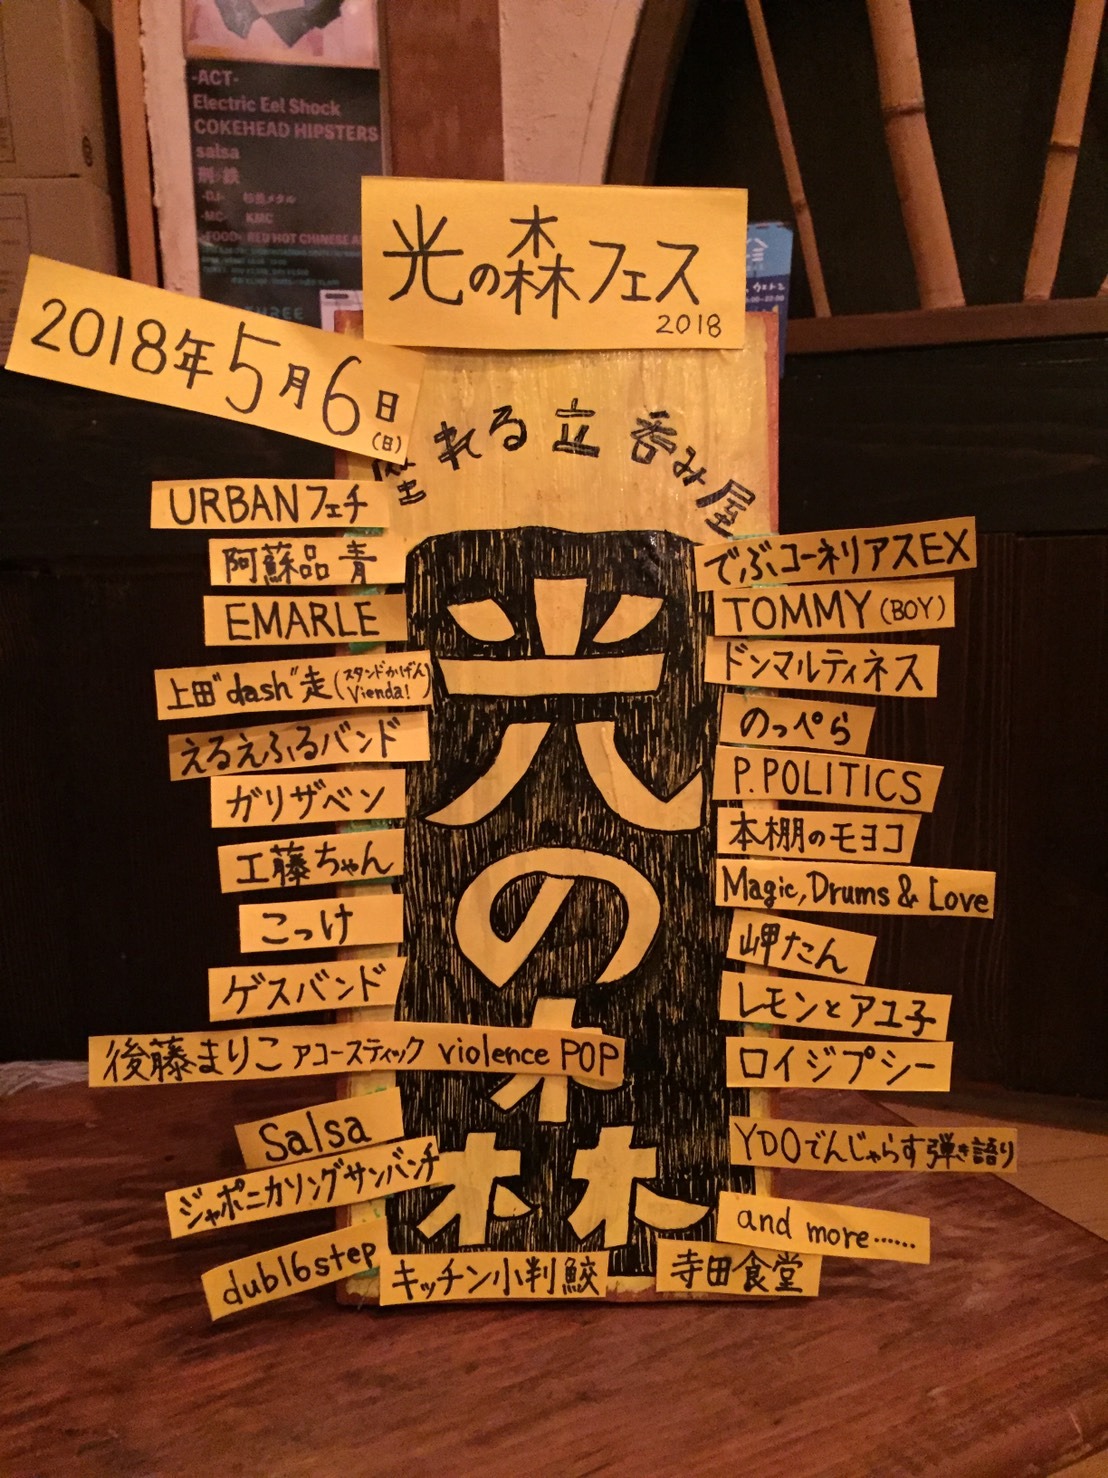 -ACT-
Electric Eel Shock
COKEHEAD HIPSTERS
salsa
刑鉄
-DJ- 杉並メタル
-MC- KMC
-FOOD- RED HOT CHINESE
光の森フェス
2018
2018年5月6日
(日)
座れる立呑み屋
光の森
URBANフェチ
阿蘇品 青
EMARLE
上田"dash"走(スタンドかげん Vienda!)
えるえふるバンド
ガリザベン
工藤ちゃん
こっけ
ゲスバンド
後藤まりこアコースティック violence POP
Salsa
ジャポニカソングサンバンチ
dub16step
キッチン小判鮫
寺田食堂
でぶコーネリアスEX
TOMMY(BOY)
ドンマルティネス
のっぺら
P.POLITICS
本棚のモヨコ
Magic, Drums & Love
岬たん
レモンとアユ子
ロイジプシー
YDOでんじゃらす弾き語り
and more......